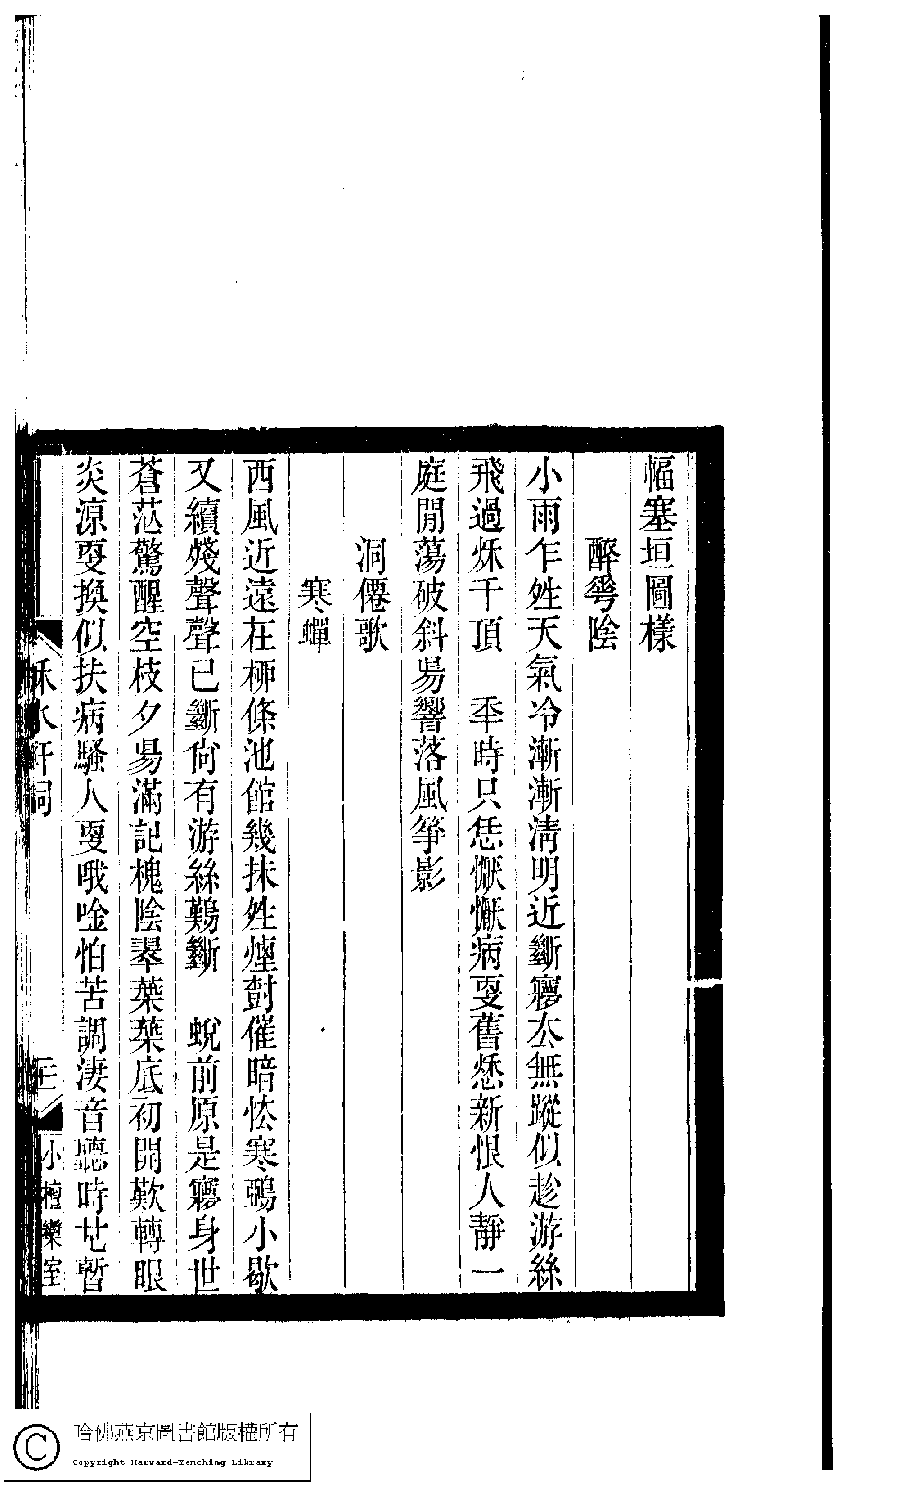 幅塞垣圖樣
醉蕚陰
小雨乍姓天氣冷漸漸淸明近斷㝱厺無蹤似趁游絲
飛過烁千頂　秊時只恁懨懨病耍舊愁新恨人靜一
庭閒蕩破斜昜響落風箏影
洞僊歌
寒蟬
西風近遠在桺條池館幾抹姓煙對催暗怯寒鵶小歇
又續殘聲聲已斷尙有游絲鷄斷　蛻前原是㝱身世
蒼茫驚醒空枝夕昜滿記槐陰翠葉葉底初開歎轉眼
炎涼耍換似扶病騷人耍哦唫怕苦調淒音聽時厺暫
秌水軒詞
小檀欒室
哈佛燕京圖書館版權所有
Copyright Harvard-Yenching Library